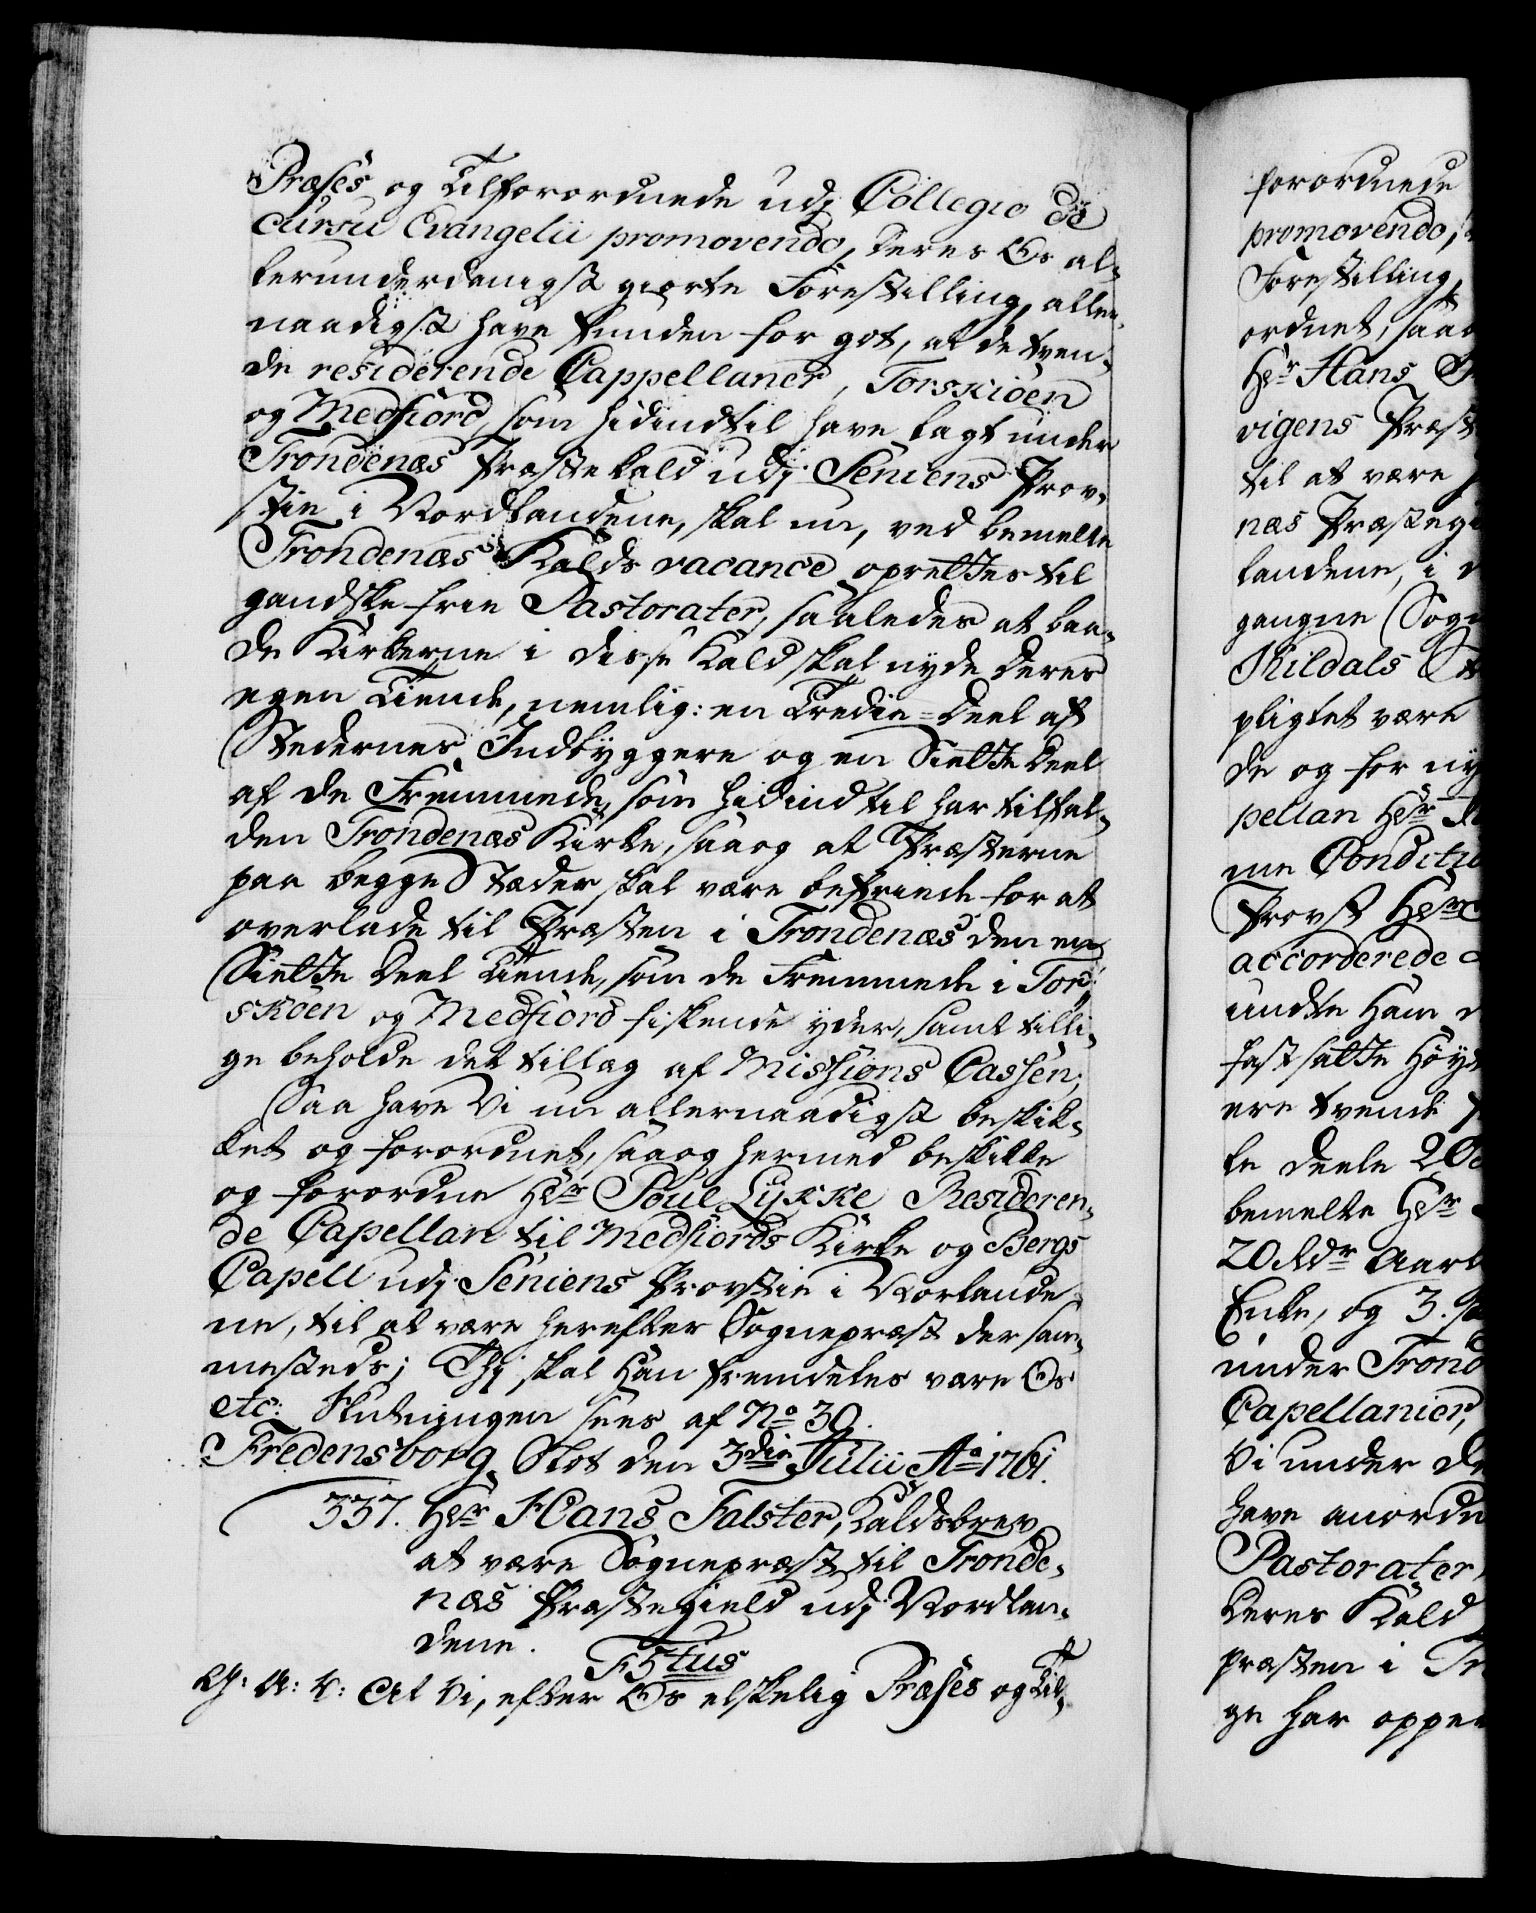 Præses og Tilforordnede udj Collegio de
cursu Evangelii promovendo, deres Os al-
lerunderdanigst giorte Forestilling, aller-
naadigst have funden for got, at de tven-
de residerende Cappellaner, Torskiöen
og Medfiord, som hidindtil have lagt under
Trondenæs Præstekald udj Seniens Prov-
stie i Nordlandene, skal nu, ved bemelte
Trondenæs Kalds vacance oprettes til
gandske frie Pastorater, saaledes at baa-
de Kirkerne i disse Kald skal nyde deres
egen Tiende, nemlig: en Tredie-Deel af
Stedernes Indbyggere og en Siette Deel
af de Fremmede, som hidindtil har tilfal-
den Trondenæs Kirke, saaog at Præsterne
paa begge Stæder skal være befriede for at
overlade til Præsten i Trondenæs den een
Siette Deel Tiende, som de Fremmede i Tor-
sköen og Medfiord fiskende yder, samt tilli-
ge beholde det tillæg af Missions Cassen;
Saa have Vi nu allernaadigst beskik-
ket og forordnet, saaog hermed beskikke
og forordne Hr Poul Lykke Resideren-
de Capellan til Medfiords Kirke og Bergs
Capell udj Seniens Provstie i Norlande-
ne, til at være herefter Sognepræst der sam-
mesteds; Thj skal Han fremdeles være Os
etc: Slutningen sees af No 30.
Fredensborg Slot den 3die Julii Ao 1761.
337. Hr Hans Falster, Kaldsbrev
at være Sognepræst til Tronde-
næs Præstegield udj Nordlan-
dene.
F5tus
G: A: V: At Vi, efter Os elskelig Præses og Til-
forordnede
promovendo,
Forestilling,
ordnet, saa
Hr Hans
vigens Præst
til at være
næs Præstegi
landene, i
gangne Sogn
Kildals
pligtet være
de og for ny
pellan Hr
me Conditio
Provst Hr
accorderede
undte Ham
fastsatte Høy
ere tvende
te deele 20
bemelte Hr
20 Rdr Aarl
Enke, og 3.
under Trond
Capellanier,
Vi under
have anordn
Pastorater,
deres Kald
præsten i Tr
ge har oppe